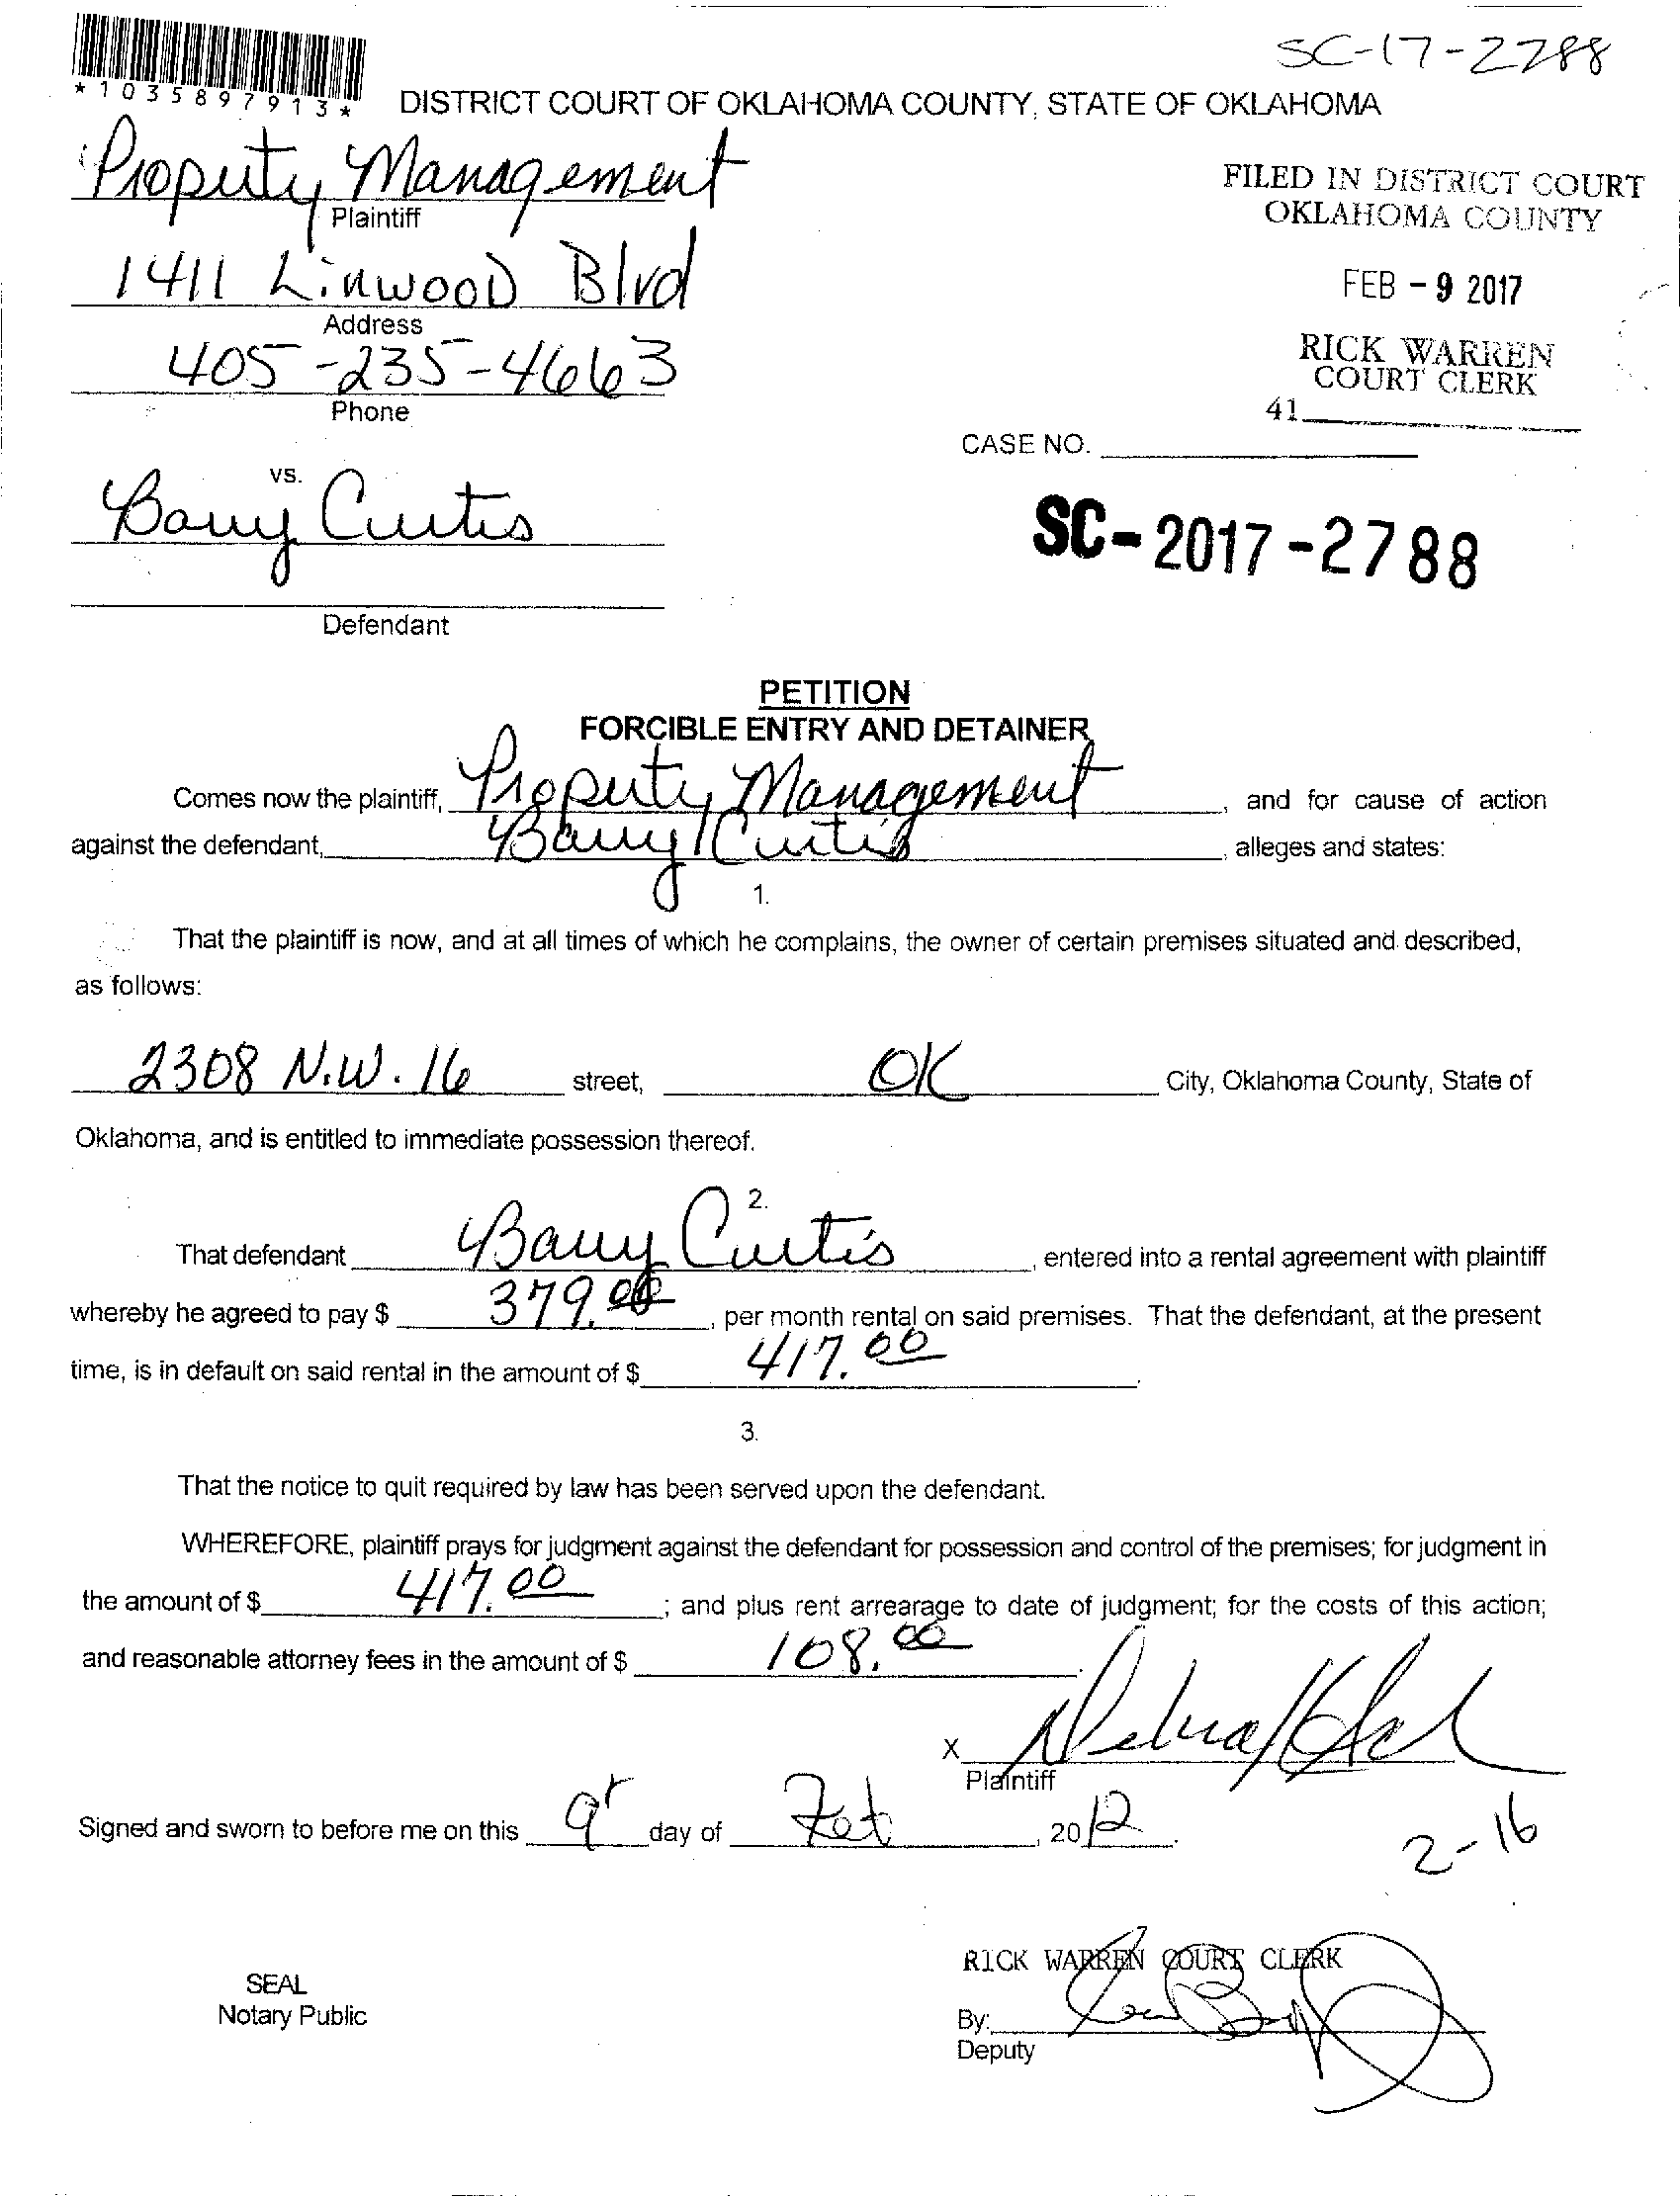 SC-17-2788
*1035897913*
DISTRICT COURT OF OKLAHOMA COUNTY, STATE OF OKLAHOMA
Property Management
Plaintiff
FILED IN DISTRICT COURT
OKLAHOMA COUNTY
1411 Linwood Blvd
Address
FEB - 9 2017
405-235-4663
Phone
RICK WARREN
COURT CLERK
41
CASE NO.
vs.
Barry Curtis
SC-2017-2788
Defendant
PETITION
FORCIBLE ENTRY AND DETAINER
Comes now the plaintiff, Property Management, and for cause of action
against the defendant, Barry Curtis, alleges and states:
1.
That the plaintiff is now, and at all times of which he complains, the owner of certain premises situated and described,
as follows:
2308 N.W. 16 street, OK City, Oklahoma County, State of
Oklahoma, and is entitled to immediate possession thereof.
2.
That defendant Barry Curtis, entered into a rental agreement with plaintiff
whereby he agreed to pay $ 379.00, per month rental on said premises. That the defendant, at the present
time, is in default on said rental in the amount of $ 417.00.
3.
That the notice to quit required by law has been served upon the defendant.
WHEREFORE, plaintiff prays for judgment against the defendant for possession and control of the premises; for judgment in
the amount of $ 417.00; and plus rent arrearage to date of judgment; for the costs of this action;
and reasonable attorney fees in the amount of $ 108.00.
X
Plaintiff
Signed and sworn to before me on this 9 day of Feb, 20
2-16
RICK WARREN COURT CLERK
SEAL
Notary Public
By:
Deputy